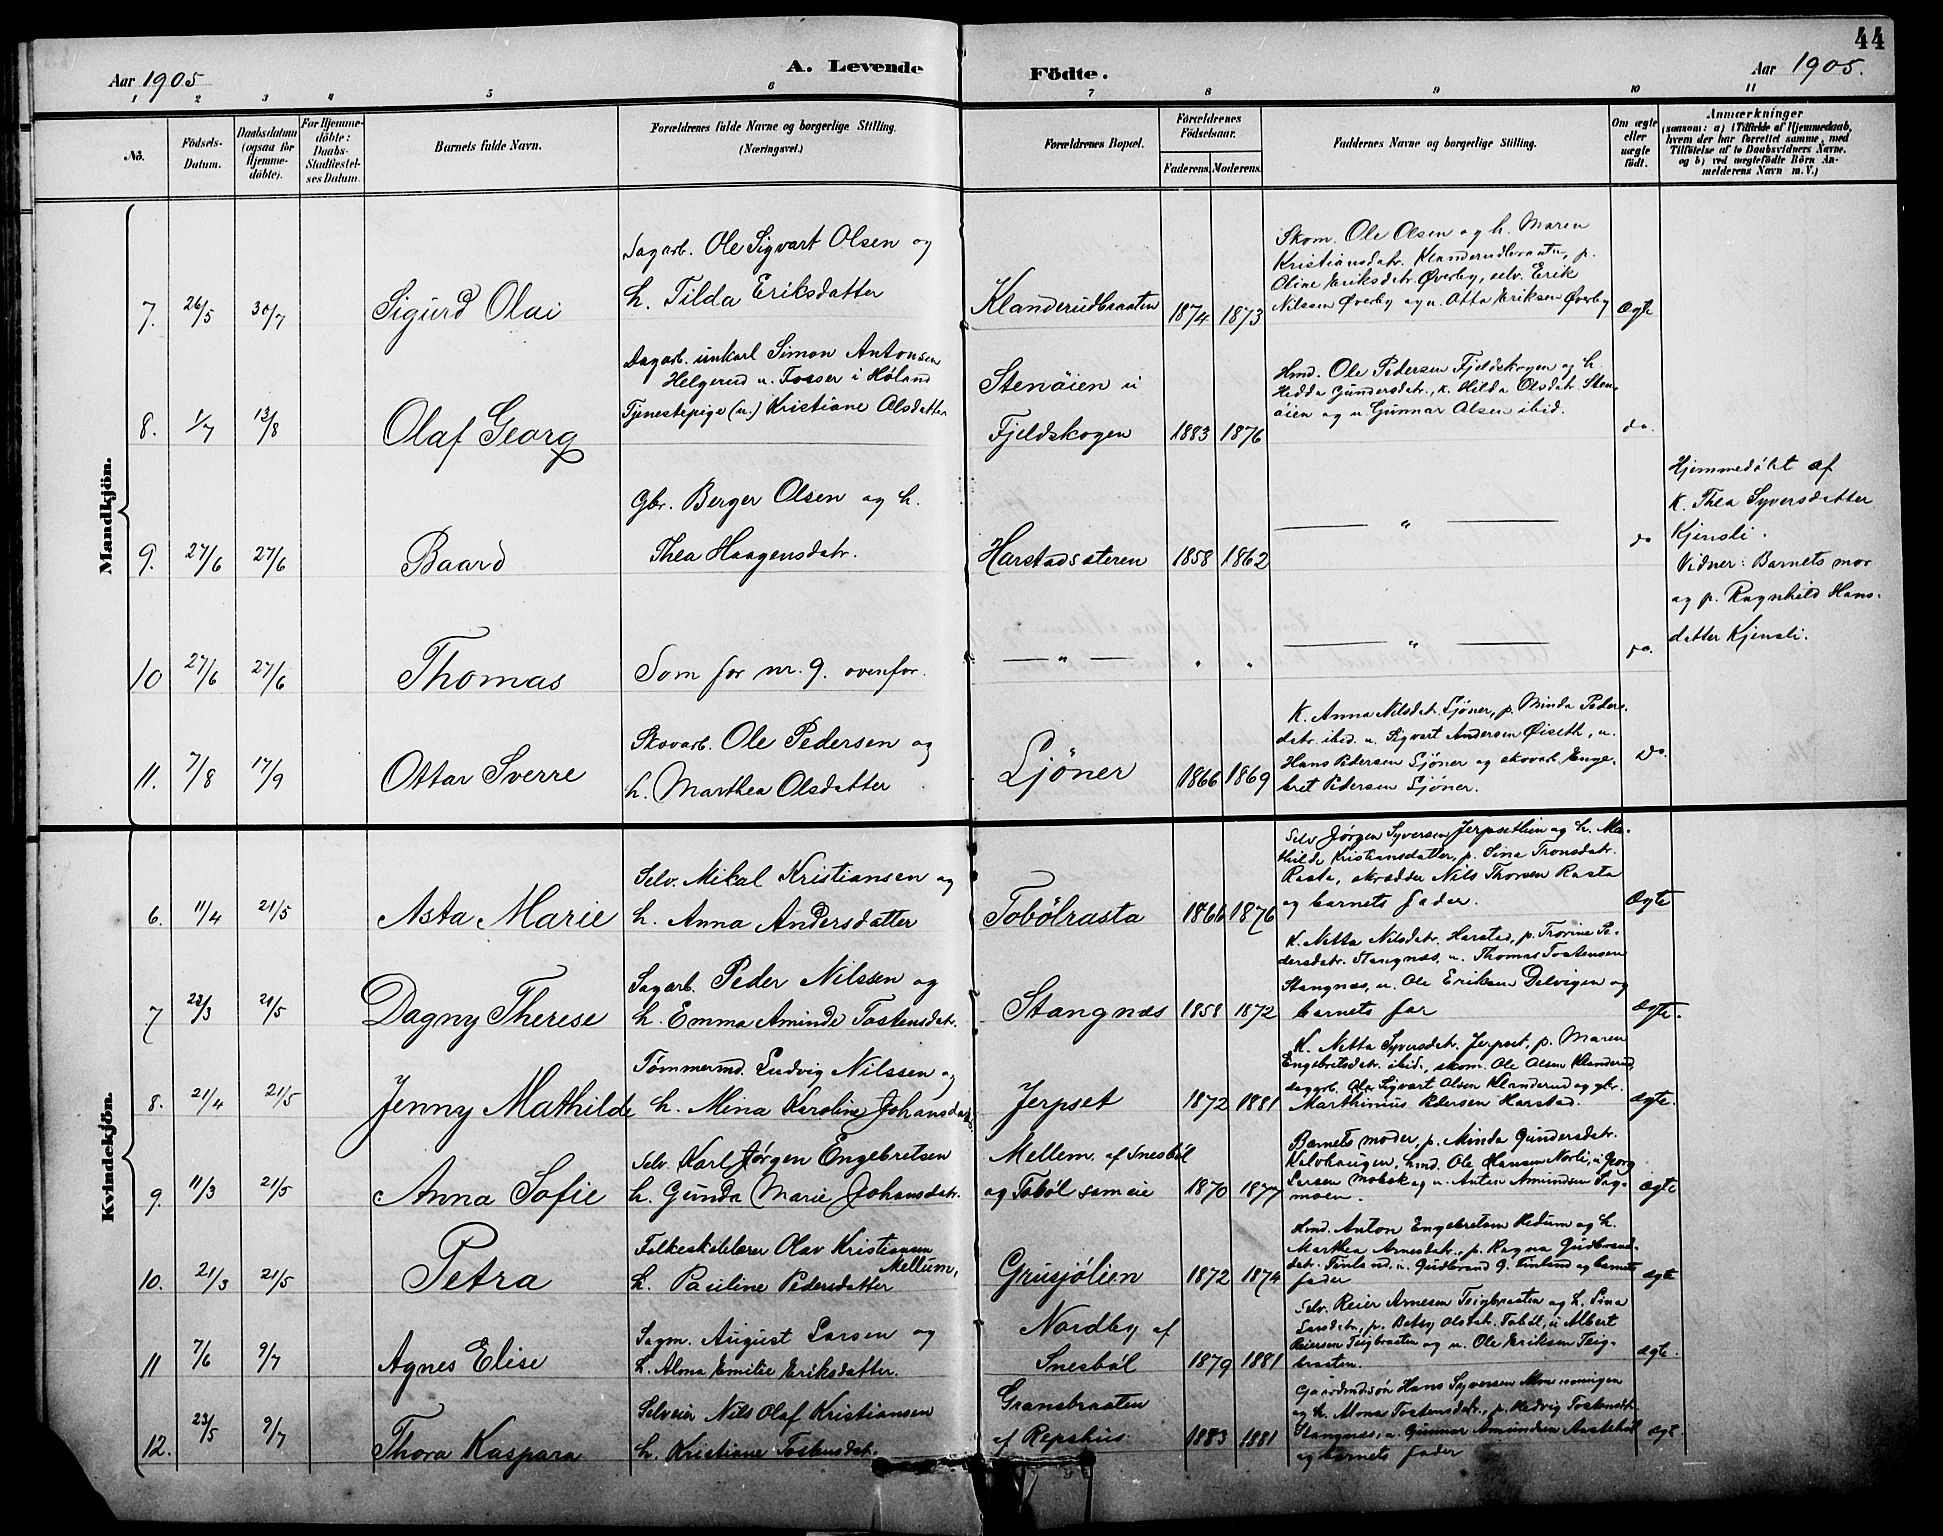 44
Aar 1905
A. Levende
Födte.
Aar 1905.
1 2 3 4 5 6 7 8 9 10 11
No.
Födsels-
Datum.
Daabsdatum
(ogsaa for
Hjemme-
döbte).
For Hjemme-
döbte:
Daabs-
Stadfæstel-
ses Datum.
Barnets fulde Navn.
Forældrenes fulde Navne og borgerlige Stilling.
(Næringsvei.)
Forældrenes Bopæl.
Forældrenes
Födselsaar.
Faderens.
Moderens.
Faddernes Navne og borgerlige Stilling.
Om ægte
eller
uægte
födt.
Anmærkninger
(saasom: a) i Tilfælde af Hjemmedaab,
hvem der har forrettet samme, med
Tilföielse af to Daabsvidners Navne,
og b) ved uægtefödte Börn An-
melderens Navn m. V.)
Mandkjön.
7.
26/5
30/7
Sigurd Olai
Sagarb. Ole Sigvart Olsen og
h. Tilda Eriksdatter
Klanderudbraaten
1874
1873
Skom. Ole Olsen og h. Maren
Kristiansdatr. Klanderudbraatn, p.
Oline Eriksdatr. Øverby, selv. Erik
Nilssen Øverby og u. Otto Eriksen Øverby
Ægte
8.
1/7
13/8
Olaf Georg
Dagarb. unkarl Simon Antonsen
Helgerud u. Fosser i Høland
Tjenestepige (u.) Kristiane Olsdatter
Stenöien u
Fjeldskogen
1883
1876
Hmd. Ole Pedersen Fjeldskogen og h.
Hedda Gundersdatr., k. Hilda Olsdatr. Sten-
öien og u. Gunnar Olsen ibid.
do.
9.
27/6
27/6
Baard
Gbr. Berger Olsen og h.
Thea Haagensdatr.
Harstadsæteren
1858
1862
"
do
Hjemmedöbt af
K. Thea Syversdatter
Kjensli.
Vidner: Barnets mor
og p. Ragnhild Hans-
datter Kjensli.
10
27/6
27/6
Thomas
Som for nr. 9. ovenfor.
"
"
"
"
do.
11.
7/8
17/9
Ottar Sverre
Skovarb. Ole Pedersen og
h. Marthea Olsdatter
Ljöner
1866
1869
K. Anna Nilsdatr. Ljöner, p. Minda Peders-
datr. ibid. u. Sigvart Andersen Øiseth, u.
Hans Pedersen Ljöner og skovarb. Enge-
bret Pedersen Ljöner.
do.
Kvindekjön.
6.
11/4
21/5
Asta Marie
Selv. Mikal Kristiansen og
h. Anna Andersdatter
Tobölrasta
1866
1876
Selv Jørgen Syversen Jerpsetlien og h. Ma-
thilde Kristiansdatter, p. Sina Tronsdatr.
Rasta, skrædder Nils Thorsen Rasta
og barnets fader.
Ægte
7
23/3
21/5
Dagny Therese
Sagarb. Peder Nilssen og
h. Emma Aminde Tostensdatr.
Stangnæs
1858
1872
K. Netta Nilsdatr. Harstad, p. Trovine Pe-
dersdatr. Stangnæs, u. Thomas Tostensen
Stangnæs, u. Ole Eriksen Delvigen og
barnets far
ægte.
8.
21/4
21/5
Jenny Mathilde
Tømmermd. Ludvig Nilssen og
h. Mina Karoline Johansdatr.
Jerpset
1872
1881
K. Netta Syversdatr. Jerpset, p. Maren
Engebretsdatr. ibid., skom. Ole Olsen Klanderud,
sagarb. Ole Sigvart Olsen Klanderud og gbr.
Marthinius Pedersen Harstad.
ægte.
9.
11/3
21/5
Anna Sofie
Selv. Karl Jørgen Engebretsen
h. Gunda Marie Johansdatr.
Mellem. af Snesböl
og Toböl sameie
1870
1877
Barnets moder, p. Minda Gundersdatr.
Kalvhaugen, hmd. Ole Hansen Norli, u. Georg
Larsen Mobæk og u. Anton Amundsen Sag-
moen.
ægte
10.
21/3
21/5
Petra
Folkeskolelærer Olav Kristiansen
Mellum,
h. Pauline Pedersdatter
Grusjölien
1872
1874
Hmd. Anton Engebretsen Hedum og h.
Marthea Arnesdatr., p. Ragna Gudbrands-
datr. Finland, u. Gudbrand G. Finland og barnets
fader
ægte
11
7/6
9/7
Agnes Elise
Sagm. August Larsen og
h. Alma Emilie Eriksdatter.
Nordby af
Snesböl
1879
1881
Selv. Reier Arnesen Teigbraaten og h. Sina
Larsdatr., p. Betsy Olsdatr. Toböl, u Albert
Reiersen Teigbraaten og u. Ole Eriksen Teig-
braaten.
ægte.
12.
23/5
9/7
Thora Kaspara
Selveier Nils Olaf Kristiansen
h. Kristiane Tostensdatr.
Gransbraaten
af Repshus
1883
1881
Gaardmdssøn Hans Syversen
og h. Alma Tostensdatr., p. Hedvig Tostensdatr.
Stangnæs, u. Gunnar Amundsen
og barnets fader
ægte.